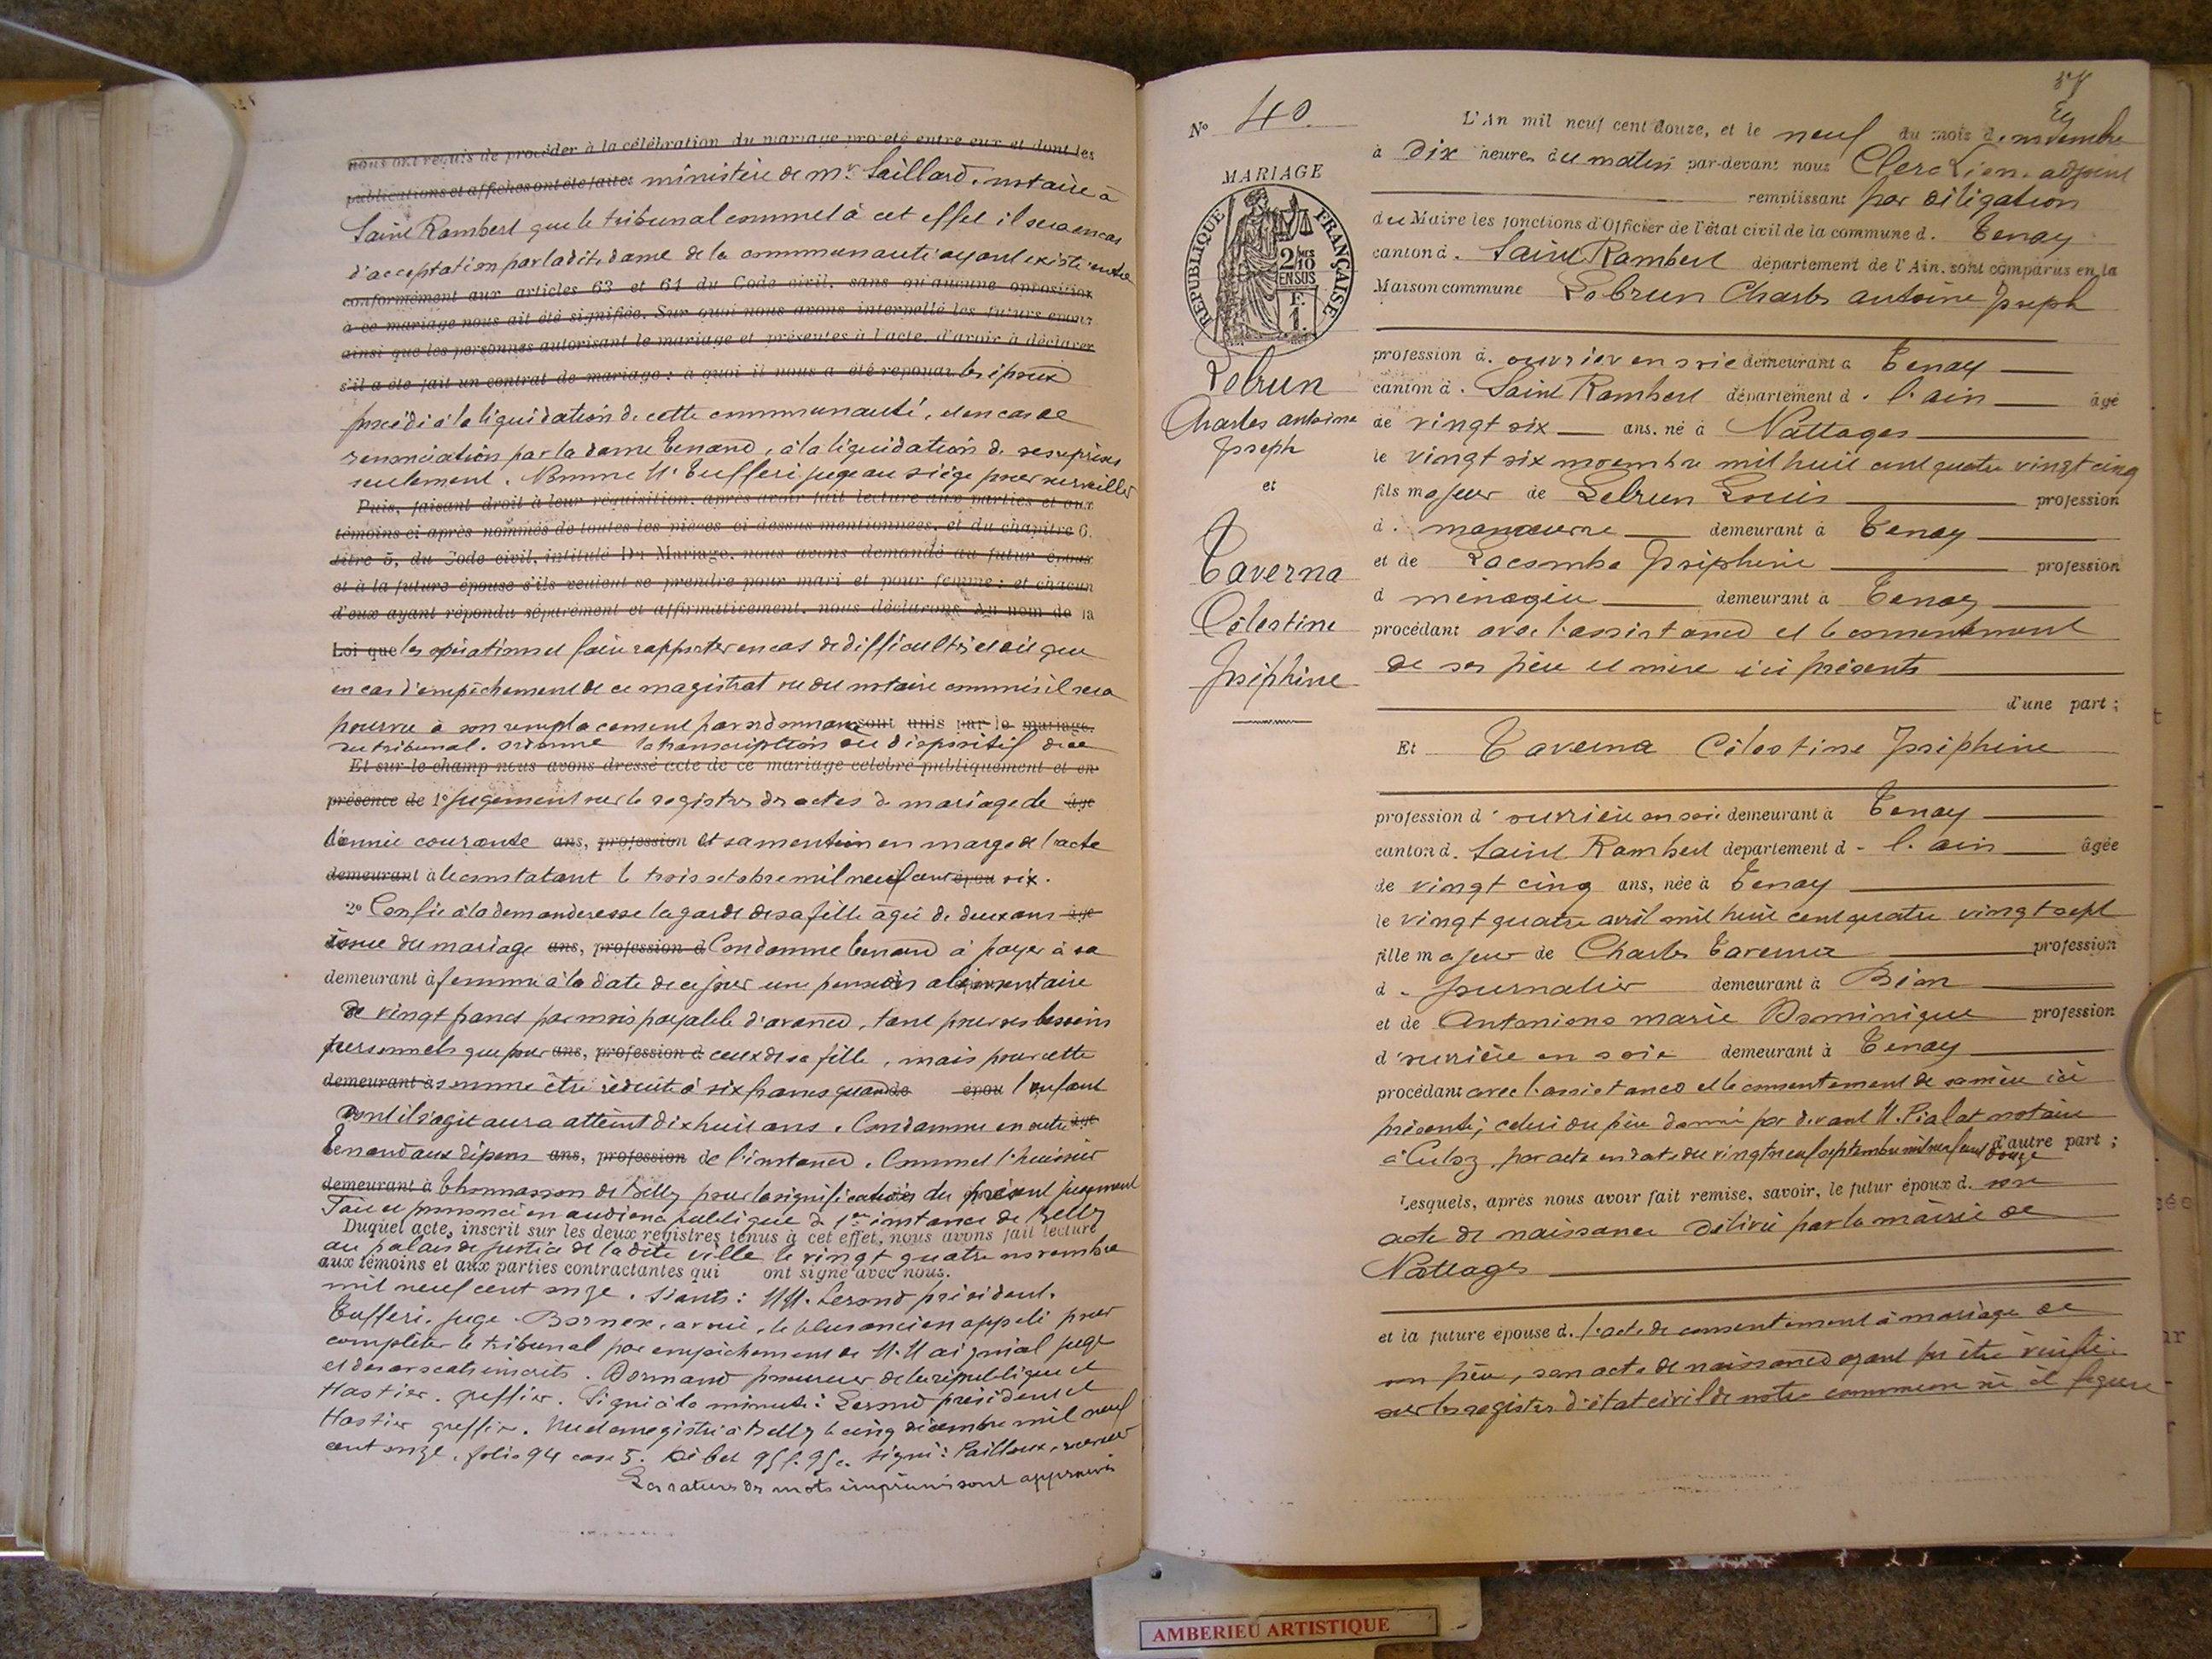 nous ont requis de procéder à la célébration du mariage projeté entre eux et dont les
publications et affiches ont été faites ministère de Mr Saillard, notaire à
Saint Rambert que le tribunal commet à cet effet il sera en cas
d'acceptation par ladite dame de la communauté ayant existé entre
conformément aux articles 63 et 64 du Code civil, sans qu'aucune opposition
à ce mariage nous ait été signifiée. Sur quoi nous avons interpellé les futurs époux
ainsi que les personnes autorisant le mariage et présentes à l'acte, d'avoir à déclarer
s'il a été fait un contrat de mariage : à quoi il nous a été répondu les époux
procédé à la liquidation de cette communauté, et en cas de
renonciation par la dame Tenand, à la liquidation de ses reprises
seulement. Nomme Mr Tufferi juge au siège pour surveiller
Puis, faisant droit à leur réquisition, après avoir fait lecture aux parties et aux
témoins ci après nommés de toutes les pièces ci dessus mentionnées, et du chapitre 6.
titre 5, du Code civil, intitulé Du Mariage, nous avons demandé au futur époux
et à la future épouse s'ils veulent se prendre pour mari et pour femme : et chacun
d'eux ayant répondu séparément et affirmativement, nous déclarons, Au nom de la
Loi que les opérations et faire rapporter en cas de difficultés et dit que
en cas d'empêchement de ce magistrat ou du notaire commis il sera
pourvu à son remplacement par ordonnance sont unis par le mariage.
du tribunal. ordonne la transcription du dispositif de ce
Et sur le champ nous avons dressé acte de ce mariage célébré publiquement et en
présence de 1° jugement sur le registre des actes de mariage de âgé
l'année courante ans, profession et sa mention en marge de l'acte
demeurant à le constatant le trois octobre mil neuf cent épou six.
2° Confie à la demanderesse la garde de sa fille âgée de deux ans âgé
issue du mariage ans, profession d Condamne Tenand à payer à sa
demeurant à femme à la date de ce jour une pension alimentaire
de vingt francs par mois payable d'avance, tant pour ses besoins
personnels que pour ans, profession d ceux de sa fille, mais pour cette
demeurant à somme être réduite à six francs quand de épou l'enfant
dont il s'agit aura atteint dix huit ans. Condamne en outre âgé
Tenand aux dépens ans, profession de l'instance. Commet l'huissier
demeurant à Thomasson de Belley pour la signification du présent jugement
Fait et prononcé en audience publique de 1ère instance de Belley
Duquel acte, inscrit sur les deux registres tenus à cet effet, nous avons fait lecture
au palais de justice de ladite ville le vingt quatre novembre
aux témoins et aux parties contractantes qui ont signé avec nous.
mil neuf cent onze. Séants : MM. Lesond président.
Tufferi, juge. Bornex, avoué, le plus ancien appelé pour
compléter le tribunal par empêchement de M. juge
et des avocats inscrits. Dormand procureur de la république et
Hastier, greffier. Signé à la minute : Lesond président et
Hastier greffier. Vu et enregistré à Belley le cinq décembre mil neuf
cent onze, folio 94 case 5. Débet 95 f. 95 c. signé : Pailloux, receveur
Les ratures des mots imprimés sont approuvés
No 40
MARIAGE
RÉPUBLIQUE FRANÇAISE
2/10
EN SUS
F.
1.
Lebrun
Charles antoine
Joseph
et
Taverna
Célestine
Joséphine
L'An mil neuf cent douze, et le neuf du mois de novembre
à Dix heures du matin par-devant nous Clerc Lien. adjoint
remplissant par déligation
du Maire les fonctions d'Officier de l'état civil de la commune d. Tenay
canton d. Saint Rambert département de l'Ain. sont comparus en la
Maison commune Lebrun Charles antoine Joseph
profession d. ouvrier en soie demeurant à Tenay
canton d. Saint Rambert département d. l'ain âgé
de vingt six ans. né à Nattages
le vingt six novembre mil huit cent quatre vingt cinq
fils majeur de Lebrun Louis profession
d. manœuvre demeurant à Tenay
et de Lacombe Joséphine profession
d ménagère demeurant à Tenay
procédant avec l'assistance et le consentement
de ses père et mère ici présents
d'une part ;
Et Taverna Célestine Joséphine
profession d'ouvrière en soie demeurant à Tenay
canton d. Saint Rambert département d. l'ain âgée
de vingt cinq ans, née à Tenay
le vingt quatre avril mil huit cent quatre vingt sept
fille majeur de Charles Taverna profession
d. journalier demeurant à Béon
et de Antoniono marie Dominique profession
d'ouvrière en soie demeurant à Tenay
procédant avec l'assistance et le consentement de sa mère ici
présente ; celui du père donné par devant M. Pialat notaire
à Culoz, par acte en date du vingt neuf septembre mil neuf cent douze d'autre part ;
Lesquels, après nous avoir fait remise, savoir, le futur époux d. son
acte de naissance délivré par la mairie de
Nattages
et la future épouse d. l'acte de consentement à mariage de
son père, son acte de naissance ayant pu être vérifié
sur les registres d'état civil de notre commune où il figure
AMBERIEU ARTISTIQUE